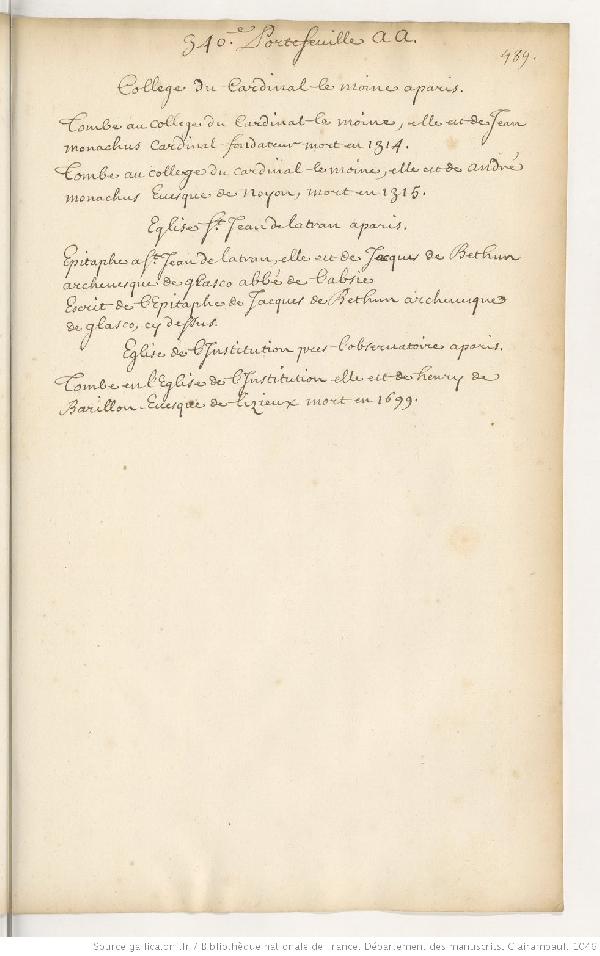 340.e Portefeuille AA.
489.
College du Cardinal le moine a paris.
Tombe au college du Cardinal le moine, elle est de Jean
monachus Cardinal fondateur mort en 1314.
Tombe au college du cardinal le moine, elle est de andré
monachus Euesque de Noyon, mort en 1315.
Eglise St Jean de latran a paris.
Epitaphe a St Jean de latran, elle est de Jacques de Bethun
archeuesque de glasco abbé de l'absie
Escrit de l'Epitaphe de Jacques de Bethun archeuesque
de glasco, cy dessus.
Eglise de l'Institution pres l'obseruatoire a paris.
Tombe en l'Eglise de l'Institution elle est de henry de
Barillon Euesque de Lizieux mort en 1699.
Source gallica.bnf.fr / Bibliothèque nationale de France. Département des manuscrits. Clairambault 1046